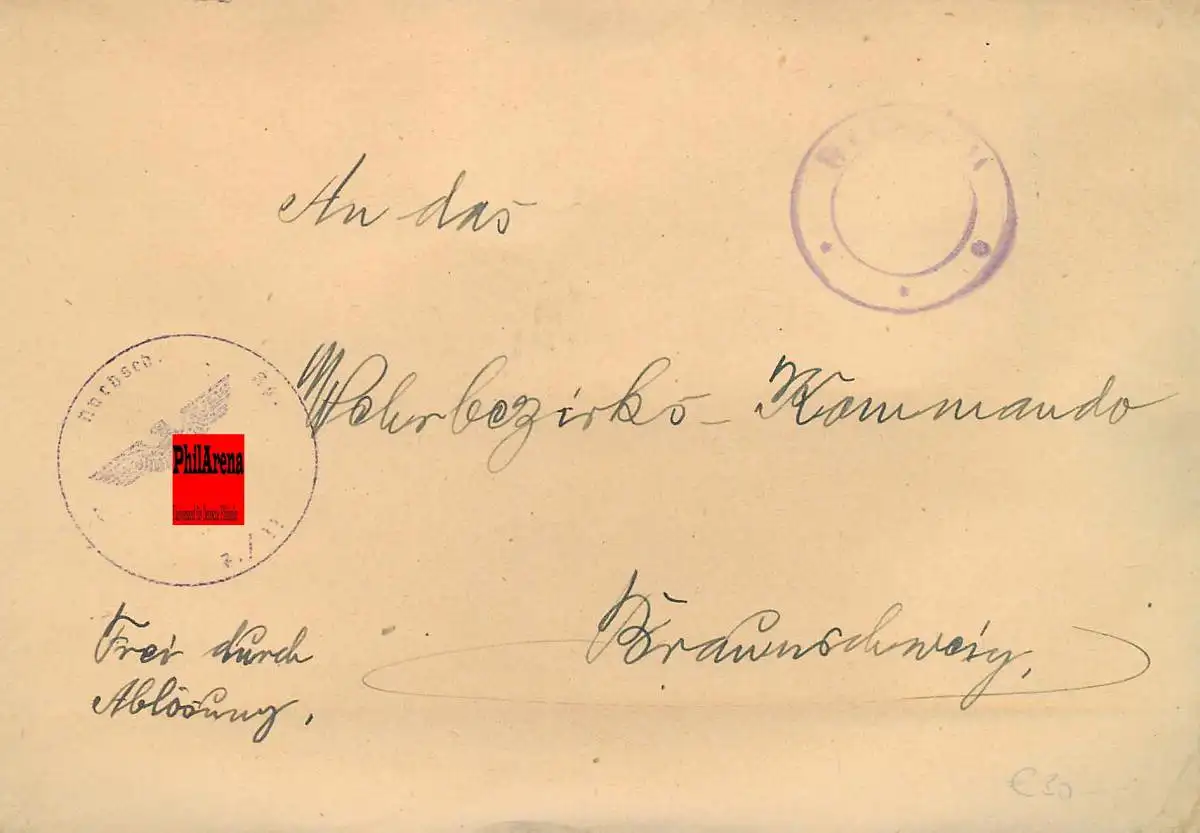 An das
Wehrbezirks-Kommando
Braunschweig.
Frei durch
Ablösung.
Nachsch.
PhilArena
€ 30